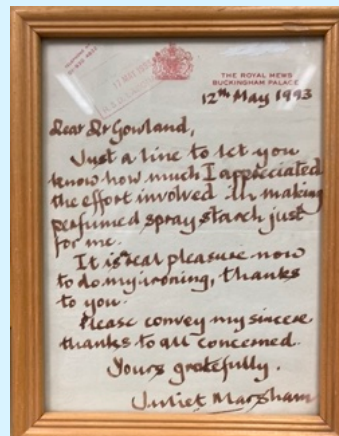 THE ROYAL MEWS
BUCKINGHAM PALACE
12th May 1993
Dear Dr Gowland,
Just a line to let you
know how much I appreciated
the effort involved in making
perfumed spray starch just
for me.
It is real pleasure now
to do my ironing, thanks
to you.
Please convey my sincere
thanks to all concerned.
Yours gratefully.
Juliet Marsham